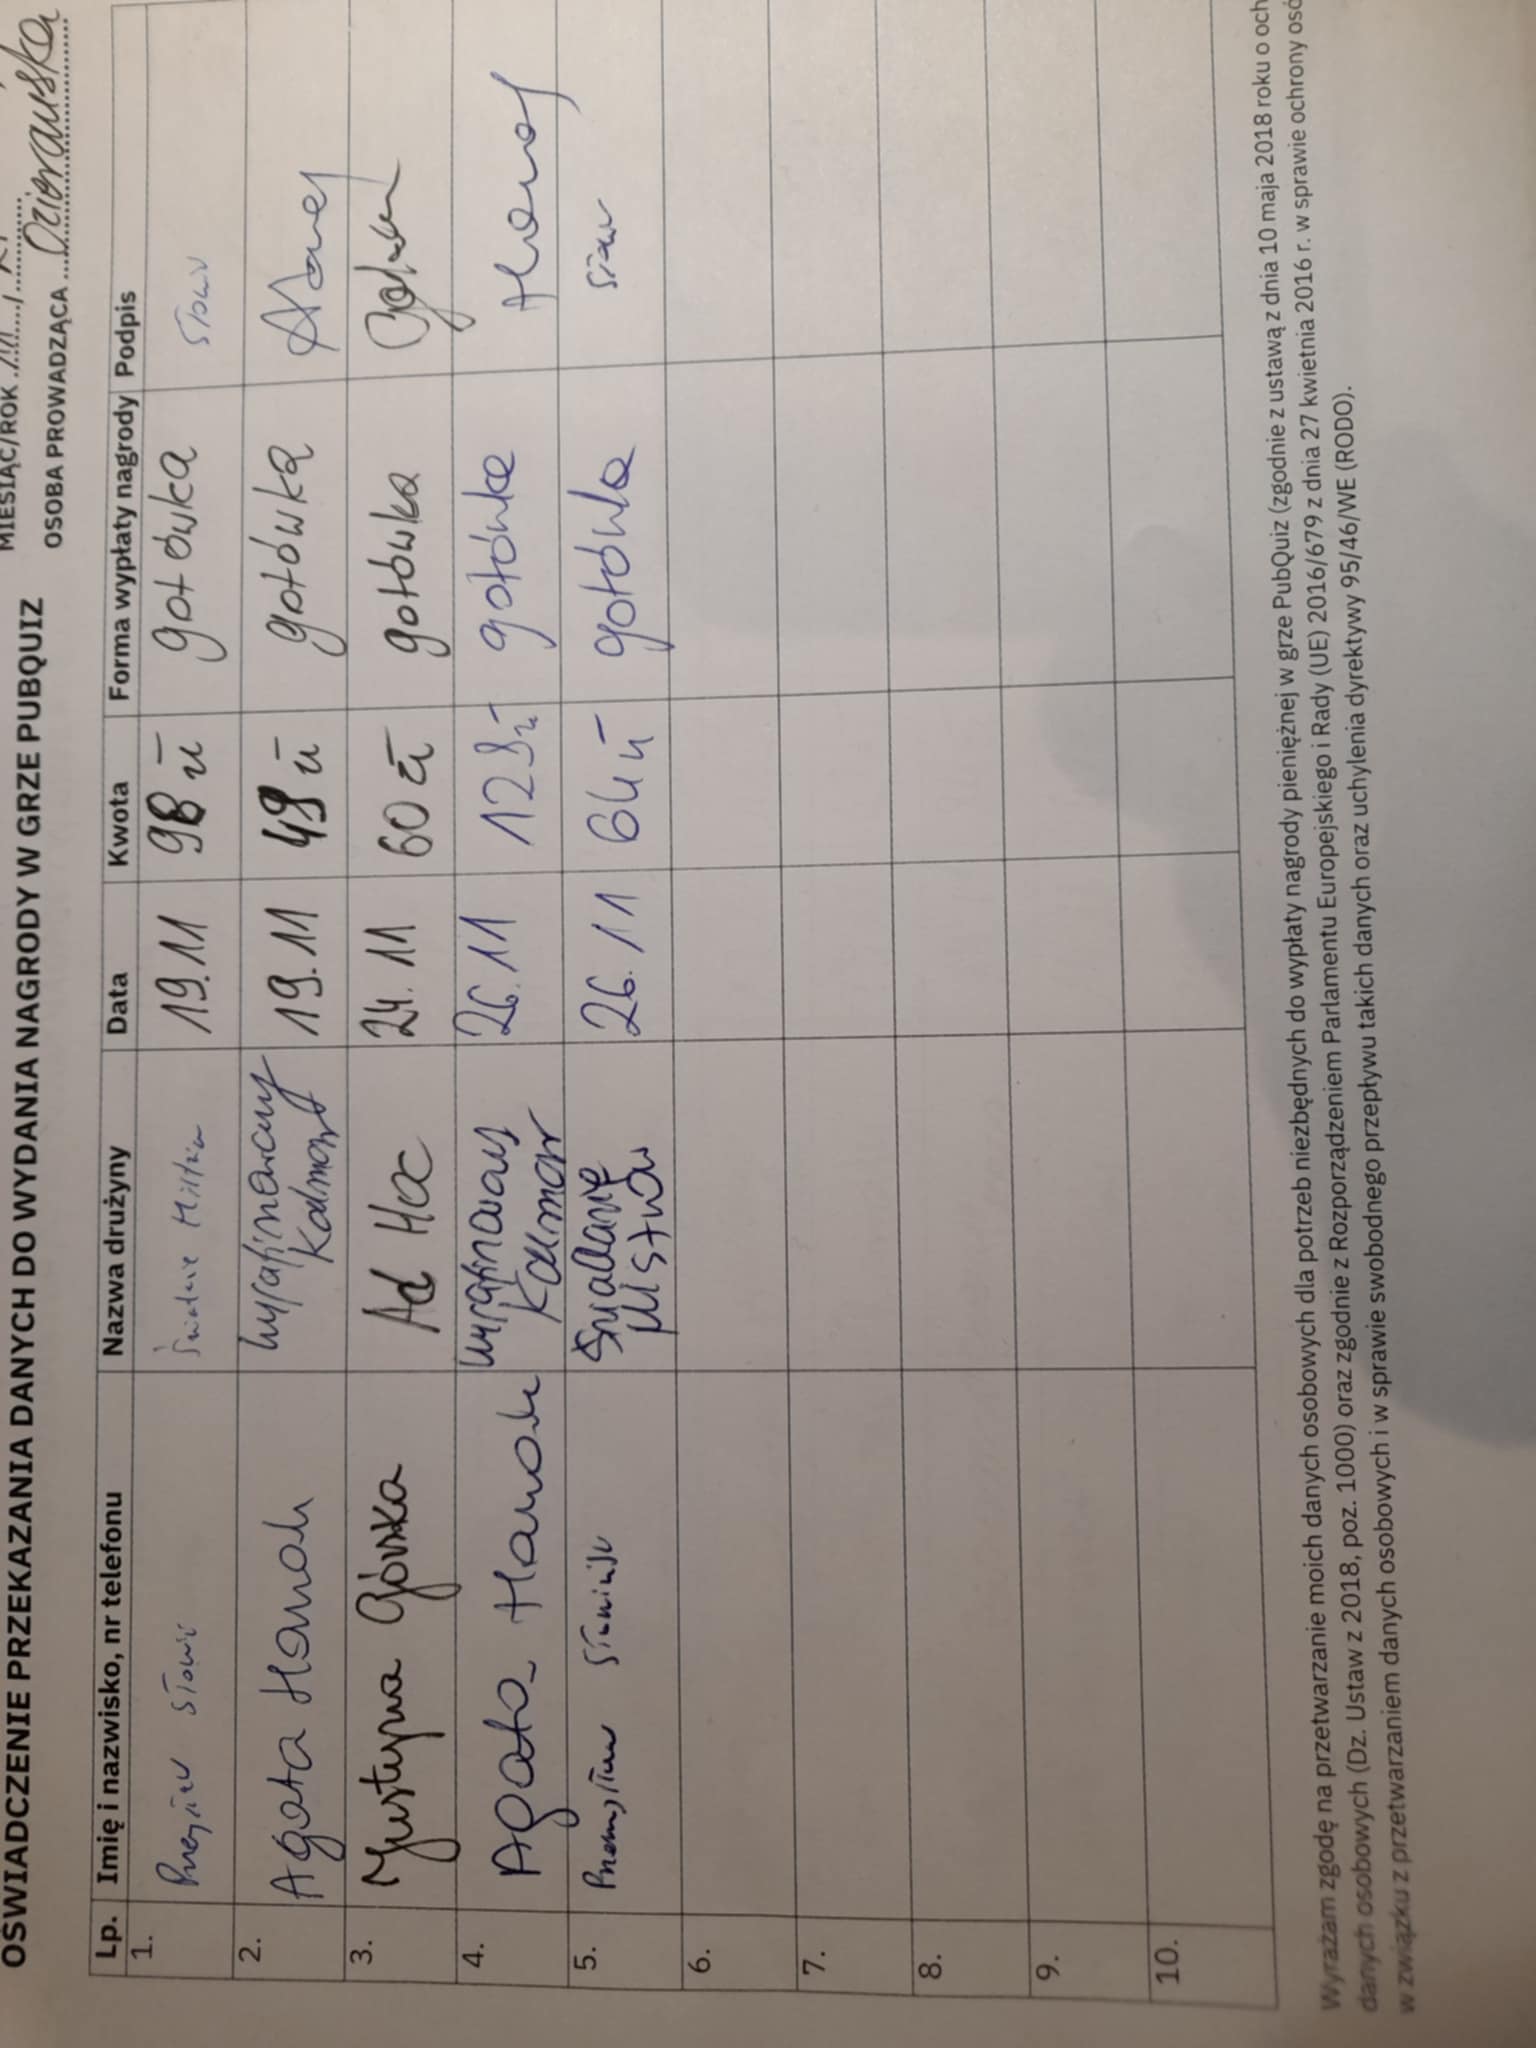 OŚWIADCZENIE PRZEKAZANIA DANYCH DO WYDANIA NAGRODY W GRZE PUBQUIZ
MIESIĄC/ROK
OSOBA PROWADZĄCA
Lp. Imię i nazwisko, nr telefonu Nazwa drużyny Data Kwota Forma wypłaty nagrody Podpis
1. 19.11 98 zł gotówka
2. Agata Wyrafinowany Kalmar 19.11 49 zł gotówka
3. Justyna Górska Ad Hoc 24.11 60 zł gotówka
4. Agata Wyrafinowany Kalmar 26.11 128 zł gotówka
5. Przemysław Śniadanie Mistrzów 26.11 64 zł gotówka
6.
7.
8.
9.
10.
Wyrażam zgodę na przetwarzanie moich danych osobowych dla potrzeb niezbędnych do wypłaty nagrody pieniężnej w grze PubQuiz (zgodnie z ustawą z dnia 10 maja 2018 roku o och
danych osobowych (Dz. Ustaw z 2018, poz. 1000) oraz zgodnie z Rozporządzeniem Parlamentu Europejskiego i Rady (UE) 2016/679 z dnia 27 kwietnia 2016 r. w sprawie ochrony osó
w związku z przetwarzaniem danych osobowych i w sprawie swobodnego przepływu takich danych oraz uchylenia dyrektywy 95/46/WE (RODO).